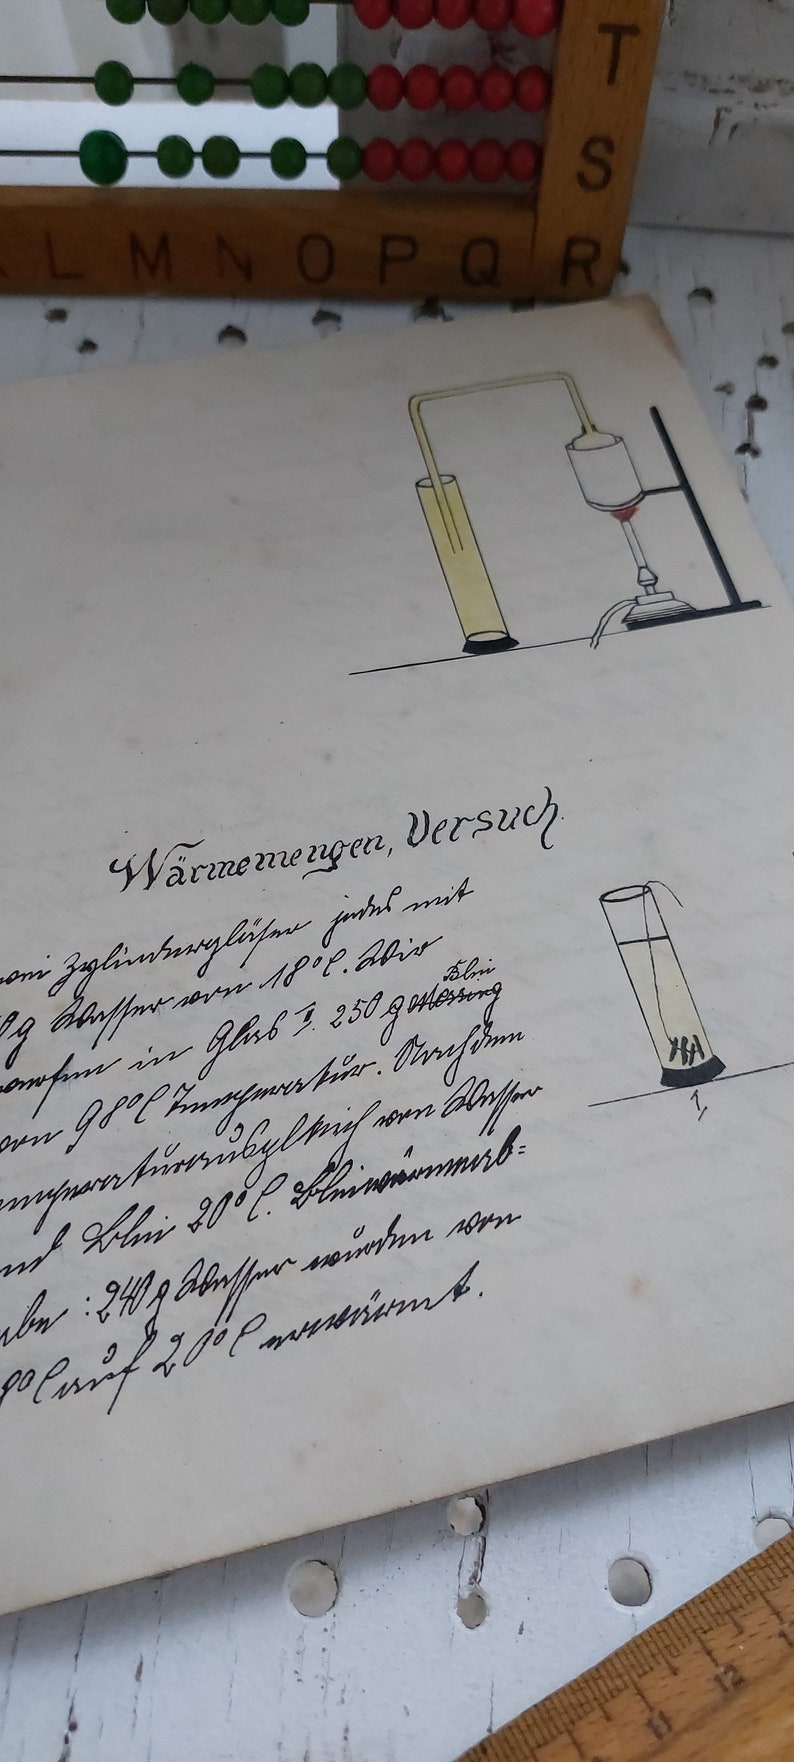 T
S
L M N O P Q R
Wärmemengen, Versuch.
Zylindergläser jedes mit
g Wasser von 18°C. Wir
Blei
in Glas I. 250 g Messing
von 98°C Temperatur. Nachdem
Temperaturausgleich von Wasser
und Blei 20°C. Bleiwärmeab=
: 240 g Wasser wurden von
°C auf 20°C erwärmt.
I,
11 12